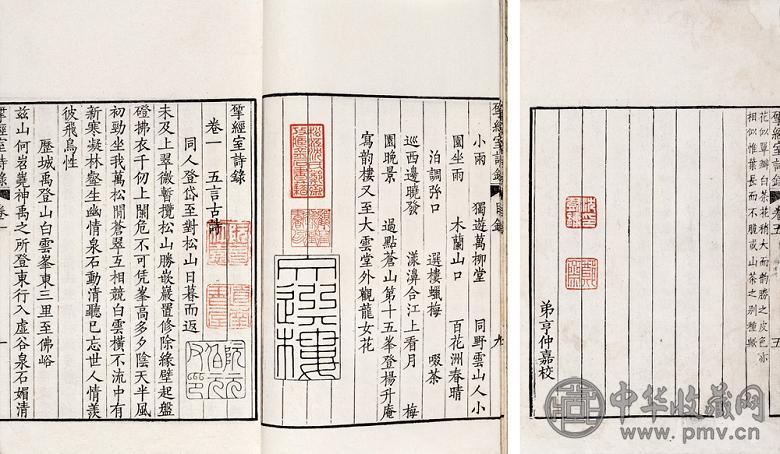 花似單瓣白茶花稍大而韵勝之皮色亦
相似惟葉長而不脆或山茶之别種歟
揅經室詩錄
卷五
五
弟亨仲嘉校
揅經室詩錄
目錄
九
小雨 獨遊萬柳堂 同野雲山人小
園坐雨 木蘭山口 百花洲春晴
泊調弥口 選樓蠟梅 啜茶
巡西邊曉發 漾濞合江上看月 梅
園晚景 過點蒼山第十五峯登楊升庵
寫韵樓又至大雲堂外觀龍女花
文選樓
揅經室詩錄
卷一 五言古詩
同人登岱至對松山日暮而返
未及上翠微暫攬松山勝嵌巖置修除緣壁起盤
磴拂衣千仞上闌危不可凭峯高多夕陰天半風
初勁坐我萬松閒蒼翠互相競白雲橫不流中有
新寒凝林壑生幽情泉石動清聽巳忘世人情羨
彼飛鳥性
歷城禹登山白雲峯東三里至佛峪
兹山何岩嶤神禹之所登東行入虛谷泉石媚清
揅經室詩錄
卷一
一
阮元
伯元
父印
中华收藏网
www.pmv.cn